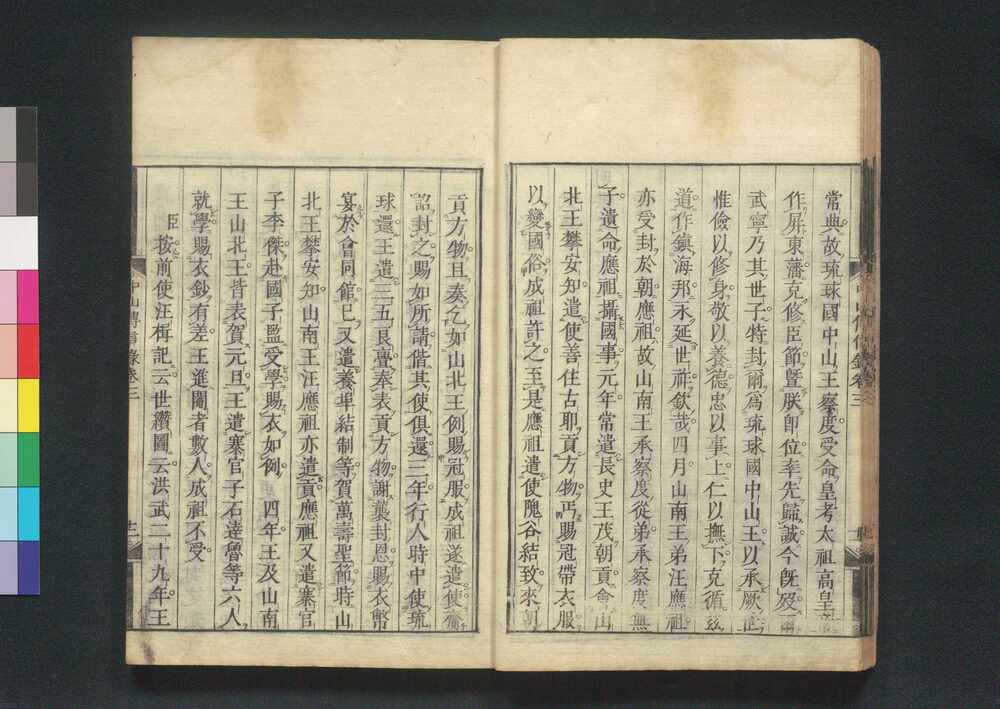 常典故琉球國中山王察度受命皇考太祖高皇帝
作屏東藩克修臣節曁朕卽位率先歸誠今旣歿爾
武寧乃其世子特封爾爲琉球國中山王以承厥世
惟儉以修身敬以養德忠以事上仁以撫下克循兹
道作鎭海邦永延世祚欽哉四月山南王弟汪應祖
亦受封於朝應祖故山南王承察度從弟承察度無
子遺命應祖攝國事元年常遣長史王茂朝貢會山
北王攀安知遣使善住古耶貢方物丐賜冠帶衣服
以變國俗成祖許之至是應祖遣使隗谷結致來朝
貢方物且奏乞如山北王例賜冠服成祖遂遣使齎
詔封之賜如所請偕其使俱還三年行人時中使琉
球還王遣三五良亹奉表貢方物謝襲封恩賜衣幣
宴於會同館已又遣養埠結制等賀萬壽聖節時山
北王攀安知山南王汪應祖亦遣貢應祖又遣寨官
子李傑赴國子監受學賜衣如例　四年王及山南
王山北王皆表賀元旦王遣寨官子石達魯等六人
就學賜衣鈔有差王進閹者數人成祖不受
臣按前使汪楫記云世纘圖云洪武二十九年王
中山傳信錄卷三
中山傳信錄卷三